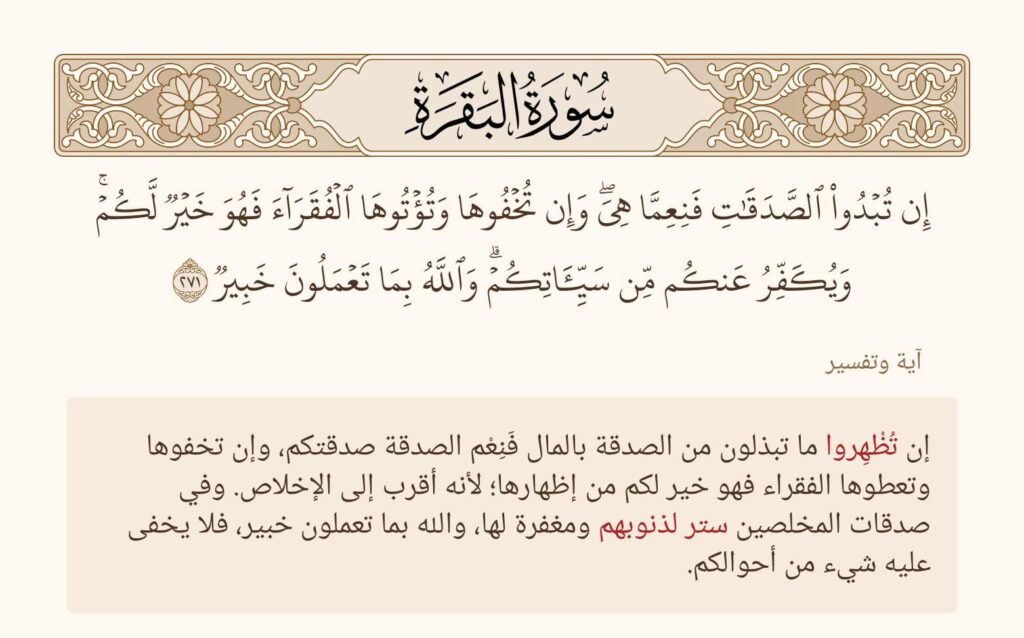 سُورَةُ البَقَرَةِ
إِن تُبۡدُواْ ٱلصَّدَقَٰتِ فَنِعِمَّا هِيَۖ وَإِن تُخۡفُوهَا وَتُؤۡتُوهَا ٱلۡفُقَرَآءَ فَهُوَ خَيۡرٞ لَّكُمۡۚ
وَيُكَفِّرُ عَنكُم مِّن سَيِّـَٔاتِكُمۡۗ وَٱللَّهُ بِمَا تَعۡمَلُونَ خَبِيرٞ ٢٧١
آية وتفسير
إن تُظْهِروا ما تبذلون من الصدقة بالمال فَنِعْم الصدقة صدقتكم، وإن تخفوها
وتعطوها الفقراء فهو خير لكم من إظهارها؛ لأنه أقرب إلى الإخلاص. وفي
صدقات المخلصين ستر لذنوبهم ومغفرة لها، والله بما تعملون خبير، فلا يخفى
عليه شيء من أحوالكم.